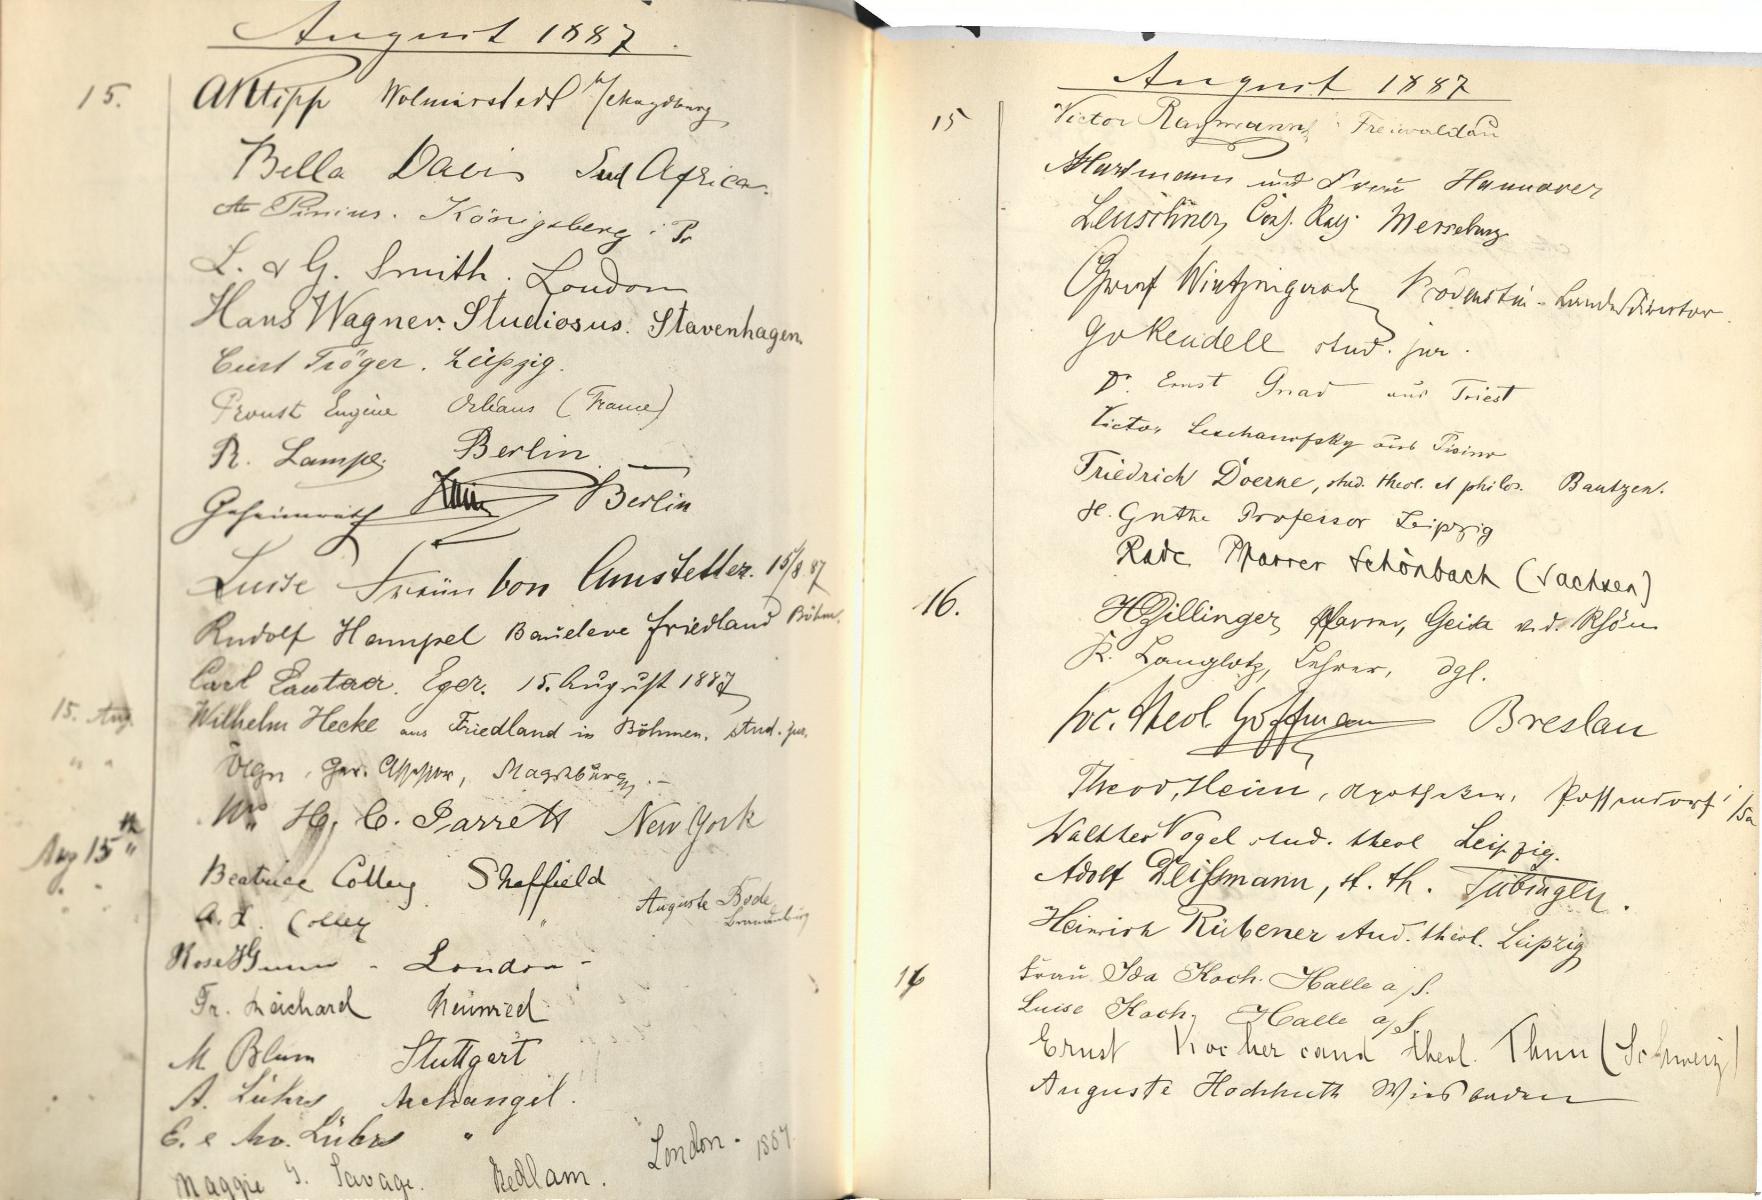 August 1887.
15. Wolmirstedt b/Magdburg
Bella Davis Sud Africa.
Pinius. Königsberg i. Pr
L. & G. Smith. London
Hans Wagner. Studiosus. Stavenhagen.
Curt Tröger. Leipzig.
Proust Eugène Orléans (France)
R. Lampe Berlin
Geheimrath Berlin
Luise von Amstetter. 15/8 87
Rudolf Hampel Baueleve Friedland Böhm.
Carl Eger. 15. August 1887
15. Aug. Wilhelm Hecke aus Friedland in Böhmen. stud. jur.
" " Ger. Assessor, Magdeburg.
H. C. Garrett New York
Aug 15th Beatrice Colley Sheffield
A. L. Colley "
Auguste Bode
Brandenburg
Rose London -
Fr. Reichard Neuwied
M Blum Stuttgart
A. Lührs Archangel.
E. e Lührs "
Maggie S. Savage. Bedlam. London - 1887.
August 1887
15 Victor Freiwaldau
A Hartmann und Frau Hannover
Leuschner, Cons. Merseburg
Graf Wintzingerode Landesdirector
stud. jur.
Dr. Ernst Gnad aus Triest
Victor aus Pisino
Friedrich Doerne, stud. theol. et philos. Bautzen.
H. Guthe Professor Leipzig
Rade Pfarrer Schönbach (Sachsen)
16. H Zillinger, Pfarrer, Geisa v. d. Rhön
K. Langlotz, Lehrer, dgl.
Lic. theol. Hoffmann Breslau
Theod. Heim, Apotheker, Possendorf i/Sa
Walther Vogel stud. theol Leipzig.
Adolf Deißmann, st. th. Tübingen.
Heinrich Rübener stud. theol. Leipzig
16 Frau Ida Koch. Halle a/S.
Luise Koch, Halle a/S.
Ernst Kocher cand theol. Thun (Schweiz)
Auguste Hochhuth Wiesbaden